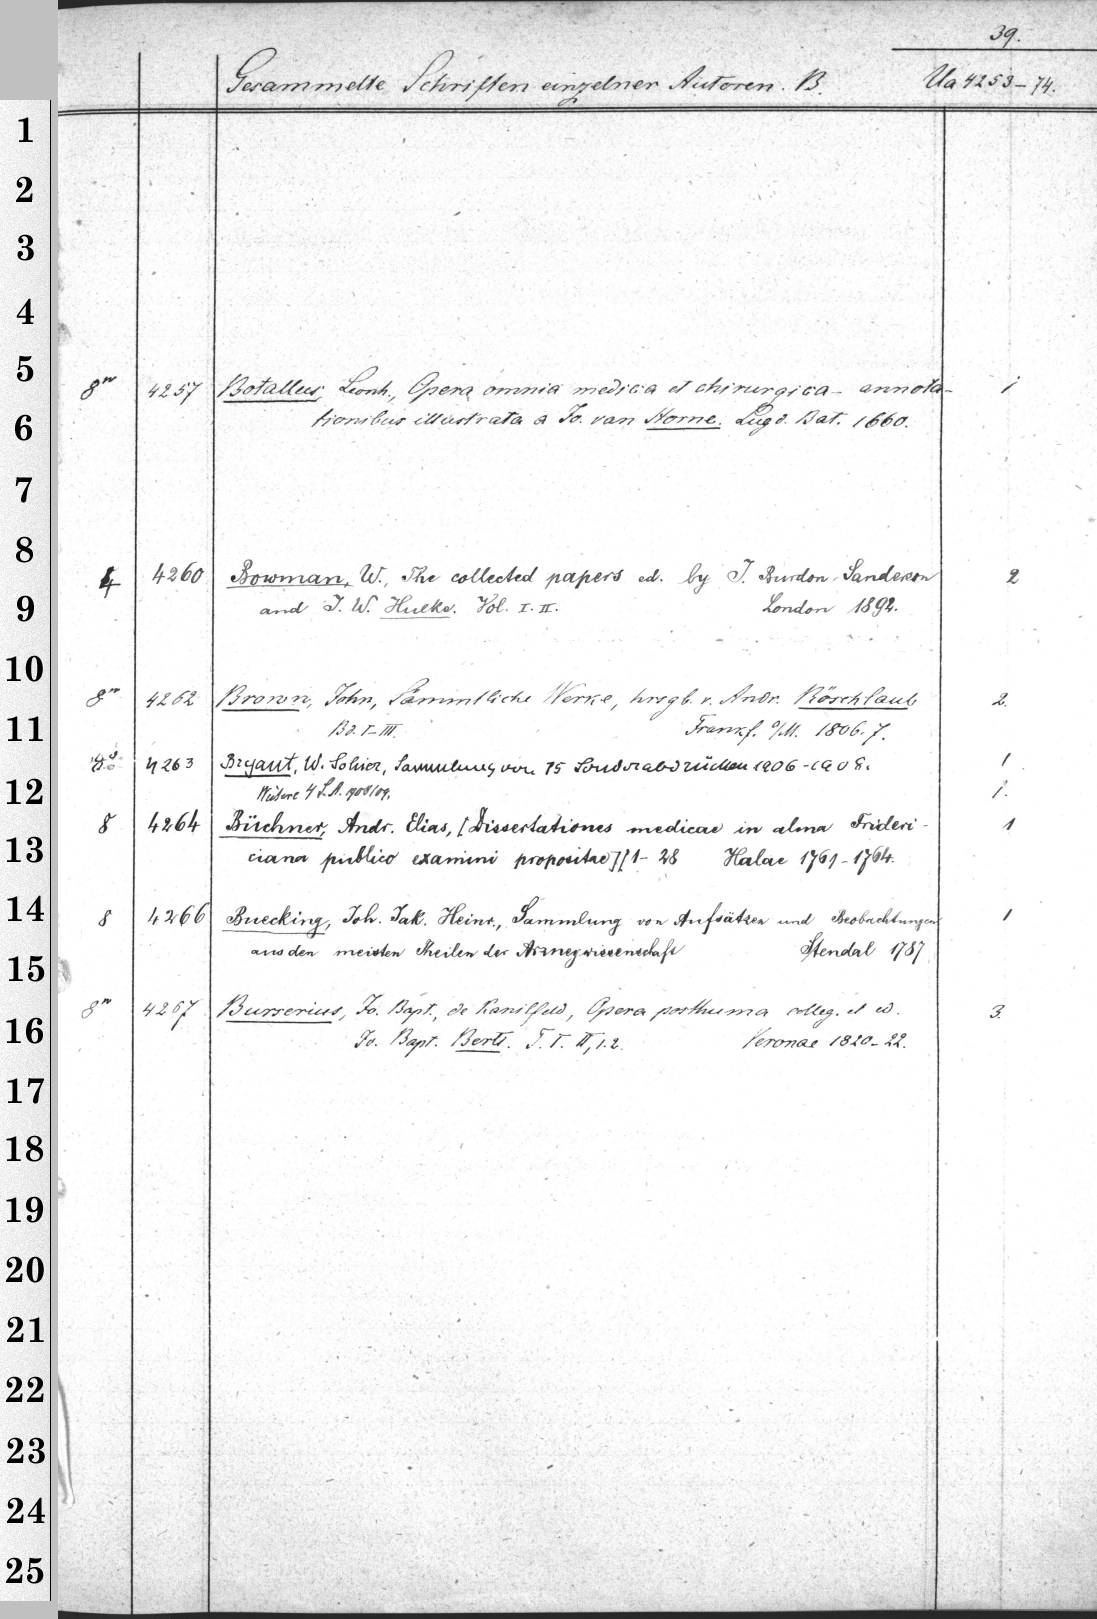 39.
Gesammelte Schriften einzelner Autoren. B. Ua 4253-74.
1
2
3
4
5
8º 4257 Botalleus, Leonh., Opera omnia medica et chirurgica - annota- 1
6 tionibus illustrata a Jo. van Horne. Lugd. Bat. 1660.
7
8
4 4260 Bowman, W., The collected papers ed. by J. Burdon-Sanderson 2
9 and J. W. Hulke. Vol. I. II. London 1892.
10
8º 4262 Brown, John, Sämmtliche Werke, hrsgb. v. Andr. Röschlaub 2.
11 Bd. I-III. Frankf. a/M. 1806. 7.
4263 Bryant, W. Sohier, Sammlung von 15 Sonderabdrücken 1906-1908. 1
12 Weitere 4 S.A. 1908/09. 1.
8 4264 Büchner, Andr. Elias, [Dissertationes medicae in alma Frideri- 1
13 ciana publico examini propositae] [1-28 Halae 1761-1764.
14
8 4266 Buecking, Joh. Jak. Heinr., Sammlung von Aufsätzen und Beobachtungen 1
15 aus den meisten Theilen der Arzneywissenschaft Stendal 1787
8º 4267 Burserius, Jo. Bapt., de Kanilfeld, Opera posthuma colleg. et ed. 3.
16 Jo. Bapt. Berti. T. I. II, 1.2. Veronae 1820-22.
17
18
19
20
21
22
23
24
25